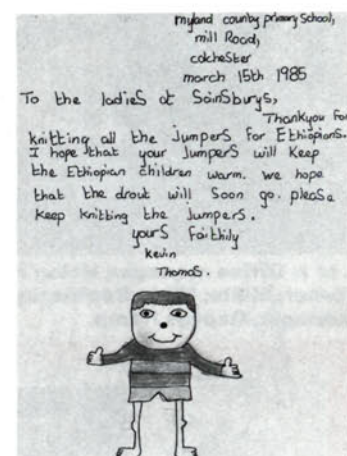 myland county primary School,
mill Road,
colchester
march 15th 1985
To the ladieS at SainSburyS,
Thankyou for
knitting all the Jumpers for Ethiopians.
I hope that your JumperS will Keep
the Ethiopian children warm. we hope
that the drout will Soon go. pleaSe
Keep knitting the JumperS.
yourS Faithily
Kevin
ThomaS.